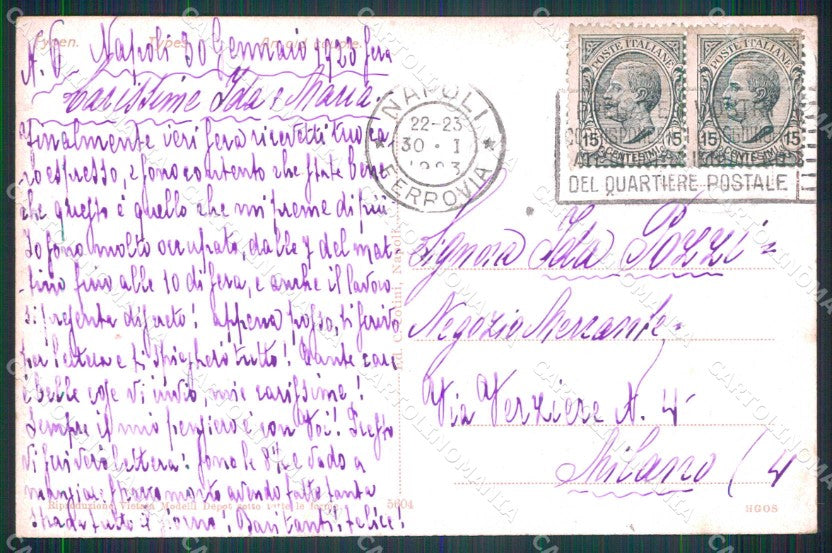 N. 6 Napoli 30 Gennaio 1923 sera
Carissime Ida e Maria
finalmente ieri sera ricevetti tuo ca
ro espresso, e sono contento che state bene
che questo è quello che mi preme di più
Io sono molto occupato, dalle 7 del mat
tino fino alle 10 di sera, e anche il lavoro
si presenta discreto! appena posso, ti scrivo
per lettera e ti spiegherò tutto! Tante cari
e belle cose vi invio, mie carissime!
Sempre il mio pensiero è con Voi! Presto
vi scriverò lettera! Sono le 8½ e vado a
mangiar, stanco morto avendo fatto tanta
strada tutto il giorno! Baci tanti, felice!
Typen. Types.
NAPOLI
22-23
30 · I
1923
FERROVIA
POSTE ITALIANE
15 CENTESIMI 15
POSTE ITALIANE
15 CENTESIMI 15
DEL QUARTIERE POSTALE
Signora Ida Pozzi =
Negozio Mercante
Via Verziere N. 4
Milano (4
Riproduzione Vietata Modelli Depot sotto tutte le forme
5604
HGOS
CARTOLINOMANIA